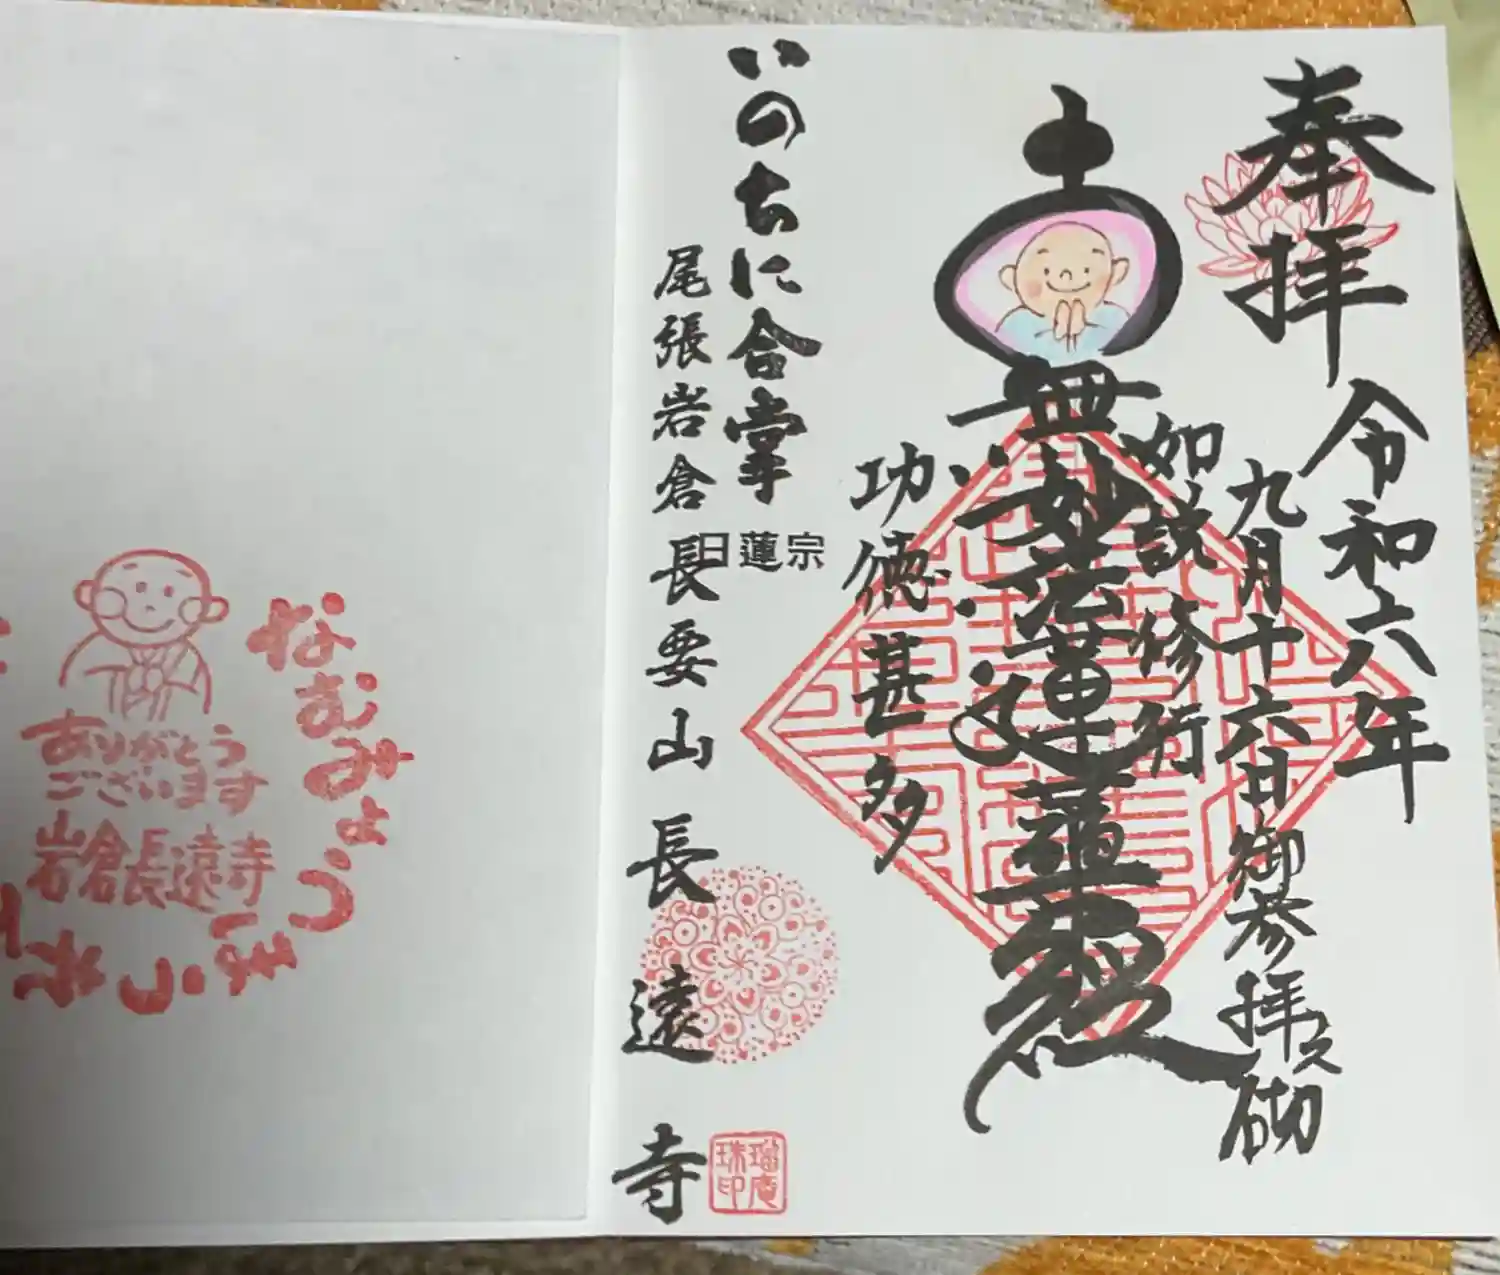 奉拝
令和六年
九月十六日御参拝之砌
如説修行
南無妙法蓮華経
功徳甚多
いのちに合掌
日蓮宗
尾張岩倉長要山長遠寺
なむみょうほう
ありがとう
ございます
岩倉長遠寺